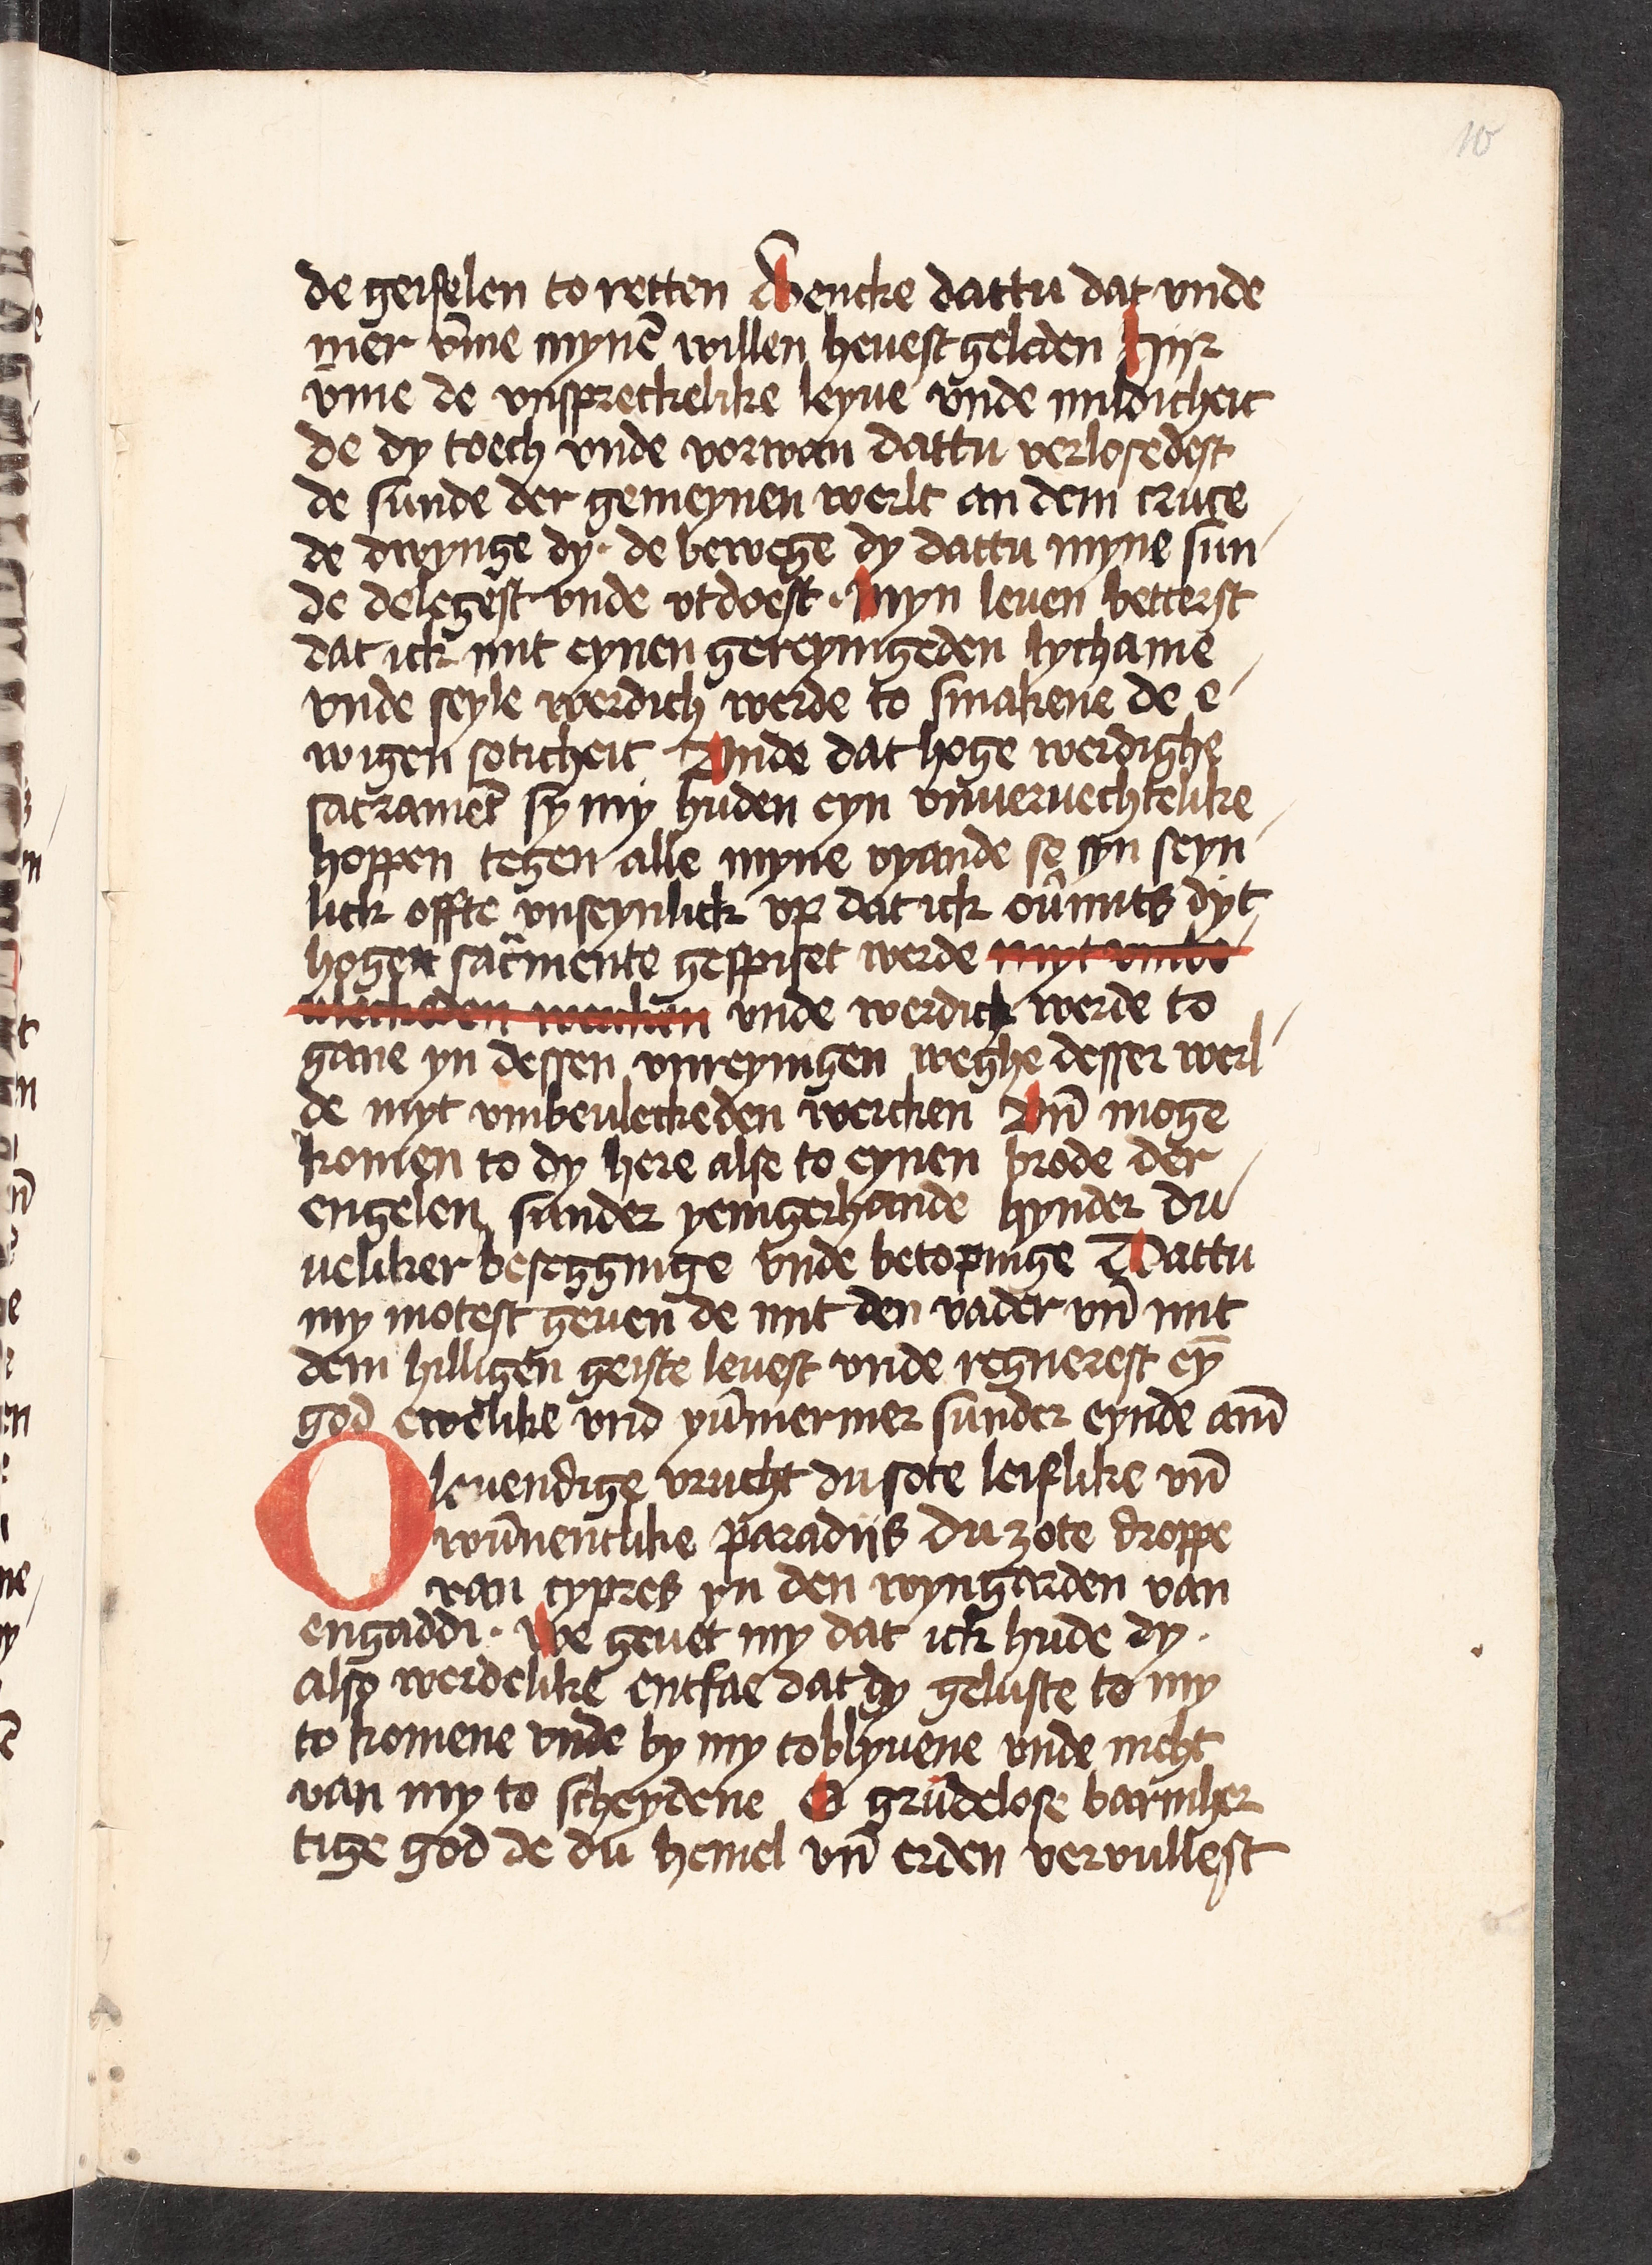 10
de geiselen to retten Dencke dattu dat vnde
mer vm̄e mynē willen heuest geleden Hijr
vme de vnspreckelike leyue vnde mildicheit
de dy toech vnde vorwan dattu verlosedest
de sunde der gemeynen werlt an dem cruce
de dwynge dy · de bewege dy dattu myne sun
de delegest vnde vtdoest · Myn leuen betterst
dat ick mit eynen gereyngeden lychame
vnde seyle werdich werde to smakene de e
wigen soticheit Vnde dat hoge werdighe
sacramēt sy my huden eyn vnuervechtelike
hoppen tegen alle myne vyande se syn seyn
lick offte vnseynlick vp dat ick ou̅mits dyt
hoge sac̄mente gespiset werde myt vmbe
uleckeden wercken vnde werdick werde to
gane yn dessen vnreyngen weghe desser werl
de myt vmbeuleckeden wercken Vn̄ moge
komen to dy here alse to eynen brode der
engelen sunder yengerhande hynder du
ueliker beseggnige vnde betopinge Dattu
my motest geuen de mit den vader vn̄ mit
dem hilligen geiste leuest vnde regnerest ey̅
god ewelike vnd yūmermer sunder eynde am̄
O leuendige vrucht du sote leiflike vn̄
wūnentlike paradijs du zote droppe
van cypres yn den wyngarden van
engaddi · We geuet my dat ick hude dy ·
also werdelike entfae dat dy geluste to my
to komene vnde by my to blyuene vnde nicht
van my to scheydene O grūdelose barmher
tige god de du hemel vn̄ erden vervullest